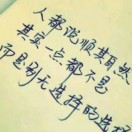 人都说顺其自然
其实一点都不是
而是别无选择的选